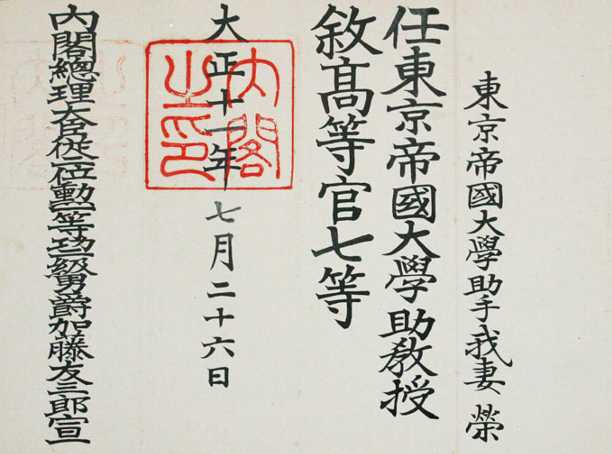 東京帝國大學助手我妻 榮
任東京帝國大學助教授
敘高等官七等
大正十一年七月二十六日
內閣之印
內閣總理大臣從二位勳一等功二級男爵加藤友三郎宣